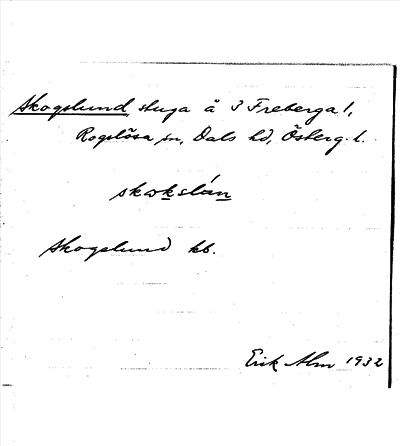 Skogslund, stuga å 3 Freberga 1,
Rogslösa sn, Dals hd, Österg. l.
skokslán
Skogslund kb.
Erik Alm 1932